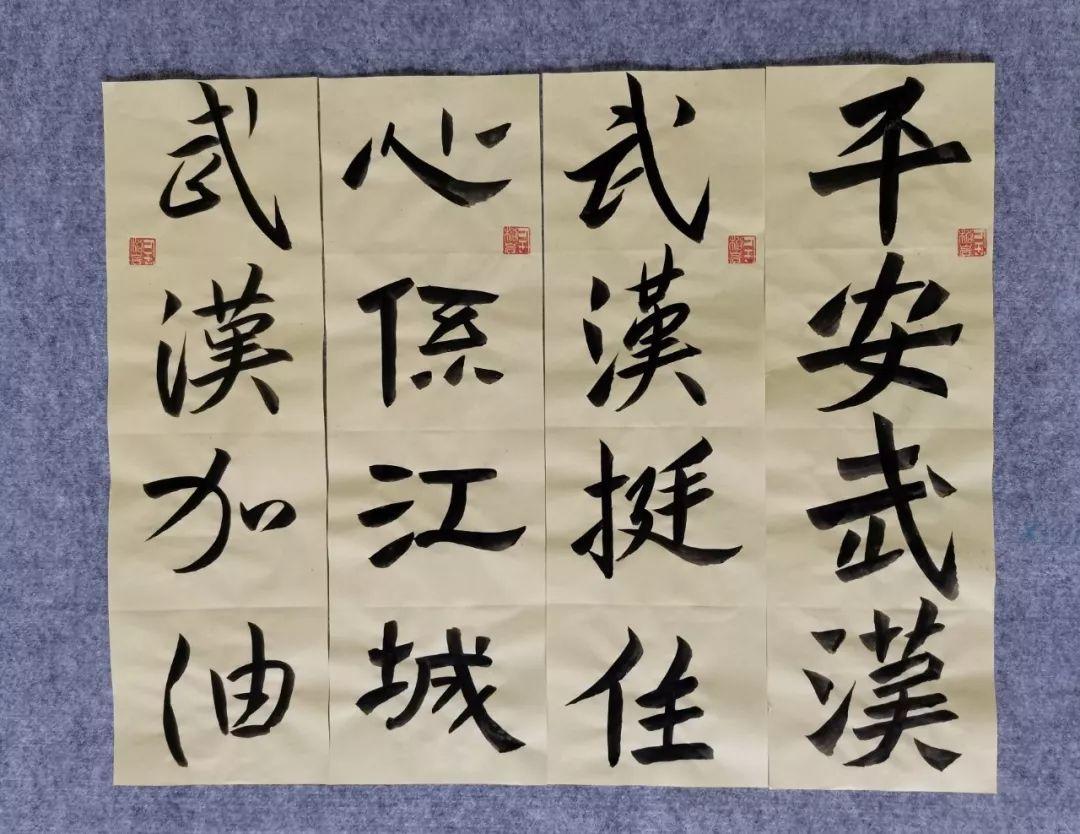 平安武漢
武漢挺住
心係江城
武漢加油